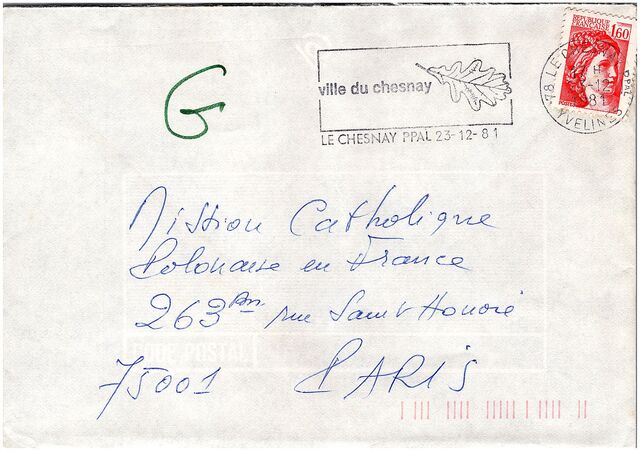 G
ville du chesnay
LE CHESNAY PPAL 23-12-81
REPUBLIQUE
FRANCAISE
1,60
POSTES
78 LE CHESNAY PPAL
H
-12
81
YVELINES
Mission Catholique
Polonaise en France
263 bis rue Saint Honoré
75001 PARIS